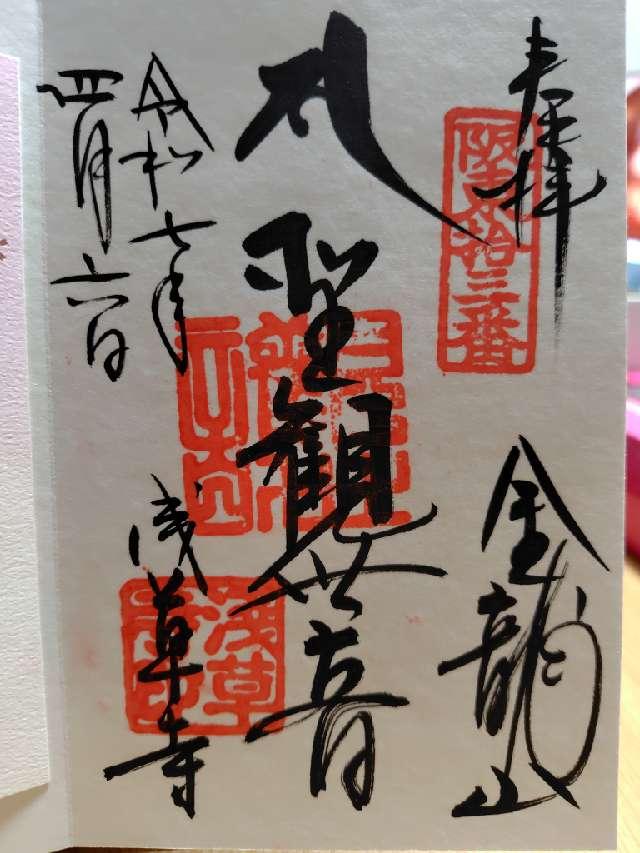 奉拝
阪東拾三番
金龍山
聖観世音
令和七年
四月六日
浅草寺